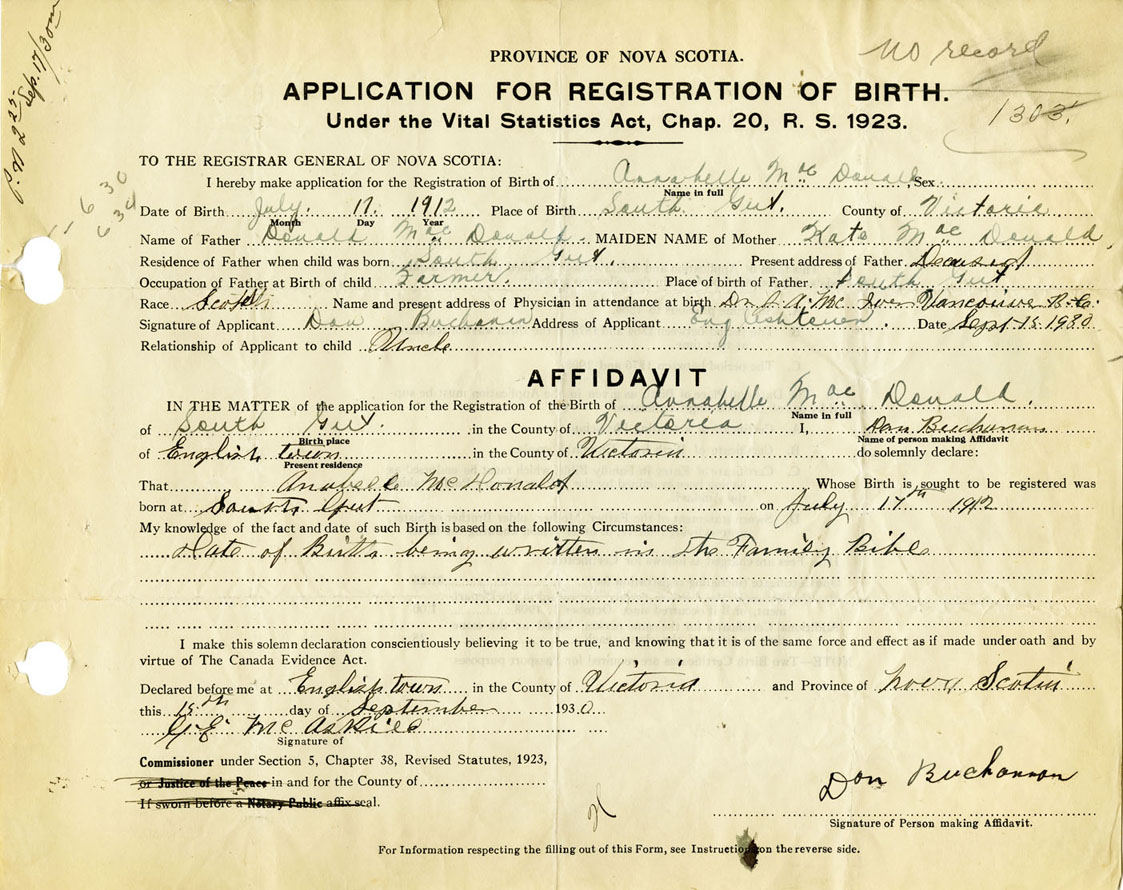 no record
PROVINCE OF NOVA SCOTIA.
Sep. 17/30
APPLICATION FOR REGISTRATION OF BIRTH.
1303.
Under the Vital Statistics Act, Chap. 20, R. S. 1923.
TO THE REGISTRAR GENERAL OF NOVA SCOTIA:
I hereby make application for the Registration of Birth of Annabelle Mac Donald Sex
Name in full
Date of Birth July. 17. 1912 Place of Birth South Gut. County of Victoria
Month Day Year
Name of Father Donald Mac Donald. MAIDEN NAME of Mother Kate Mac Donald,
Residence of Father when child was born South Gut. Present address of Father Deceased
Occupation of Father at Birth of child Farmer. Place of birth of Father South Gut
Race Scotch Name and present address of Physician in attendance at birth Dr. Vancouver B.C.
Signature of Applicant Dan Buchanan Address of Applicant Date Sept 15. 1930
Relationship of Applicant to child Uncle
AFFIDAVIT
IN THE MATTER of the application for the Registration of the Birth of Annabelle Mac Donald.
Name in full
of South Gut. in the County of Victoria I, Dan Buchanan
Birth place Name of person making Affidavit
of English town in the County of Victoria do solemnly declare:
Present residence
That Anabele McDonald Whose Birth is sought to be registered was
born at South Gut on July 17th 1912
My knowledge of the fact and date of such Birth is based on the following Circumstances:
Date of Birth being written in the Family Bible
I make this solemn declaration conscientiously believing it to be true, and knowing that it is of the same force and effect as if made under oath and by
virtue of The Canada Evidence Act.
Declared before me at English town in the County of Victoria and Province of Nova Scotia
this 15th day of September 1930
McAskill
Signature of
Commissioner under Section 5, Chapter 38, Revised Statutes, 1923,
or Justice of the Peace in and for the County of
If sworn before a Notary Public affix seal.
Dan Buchanan
Signature of Person making Affidavit.
For Information respecting the filling out of this Form, see Instructions on the reverse side.